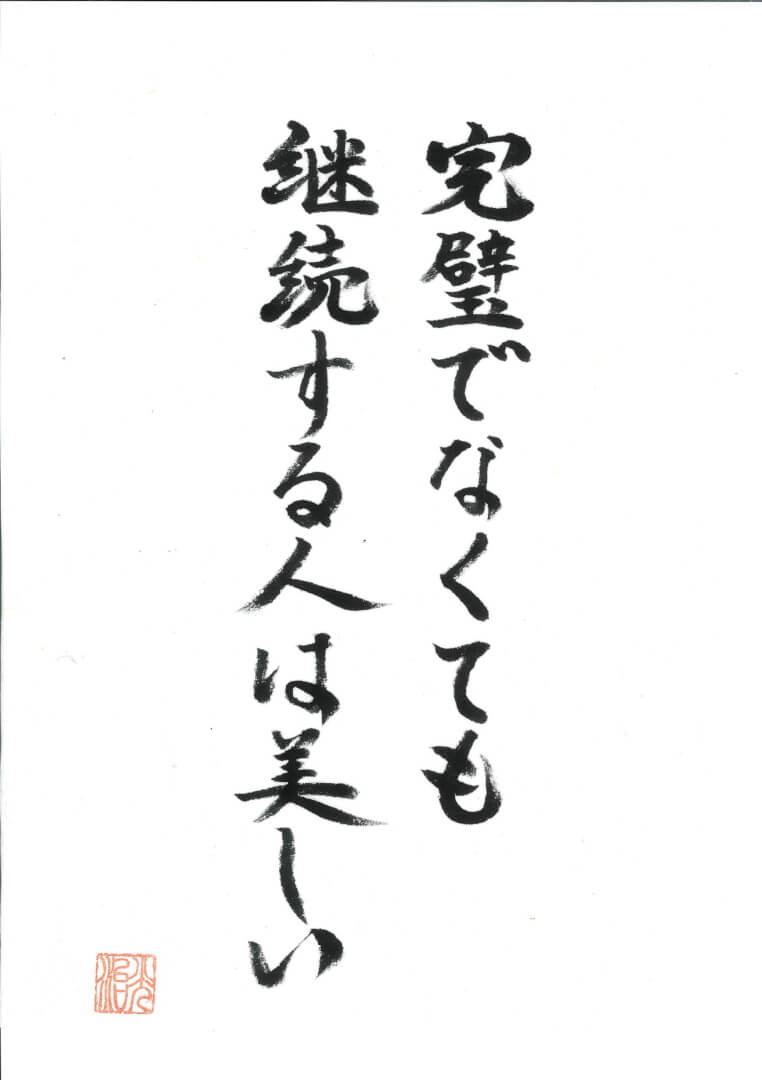 完璧でなくても
継続する人は美しい